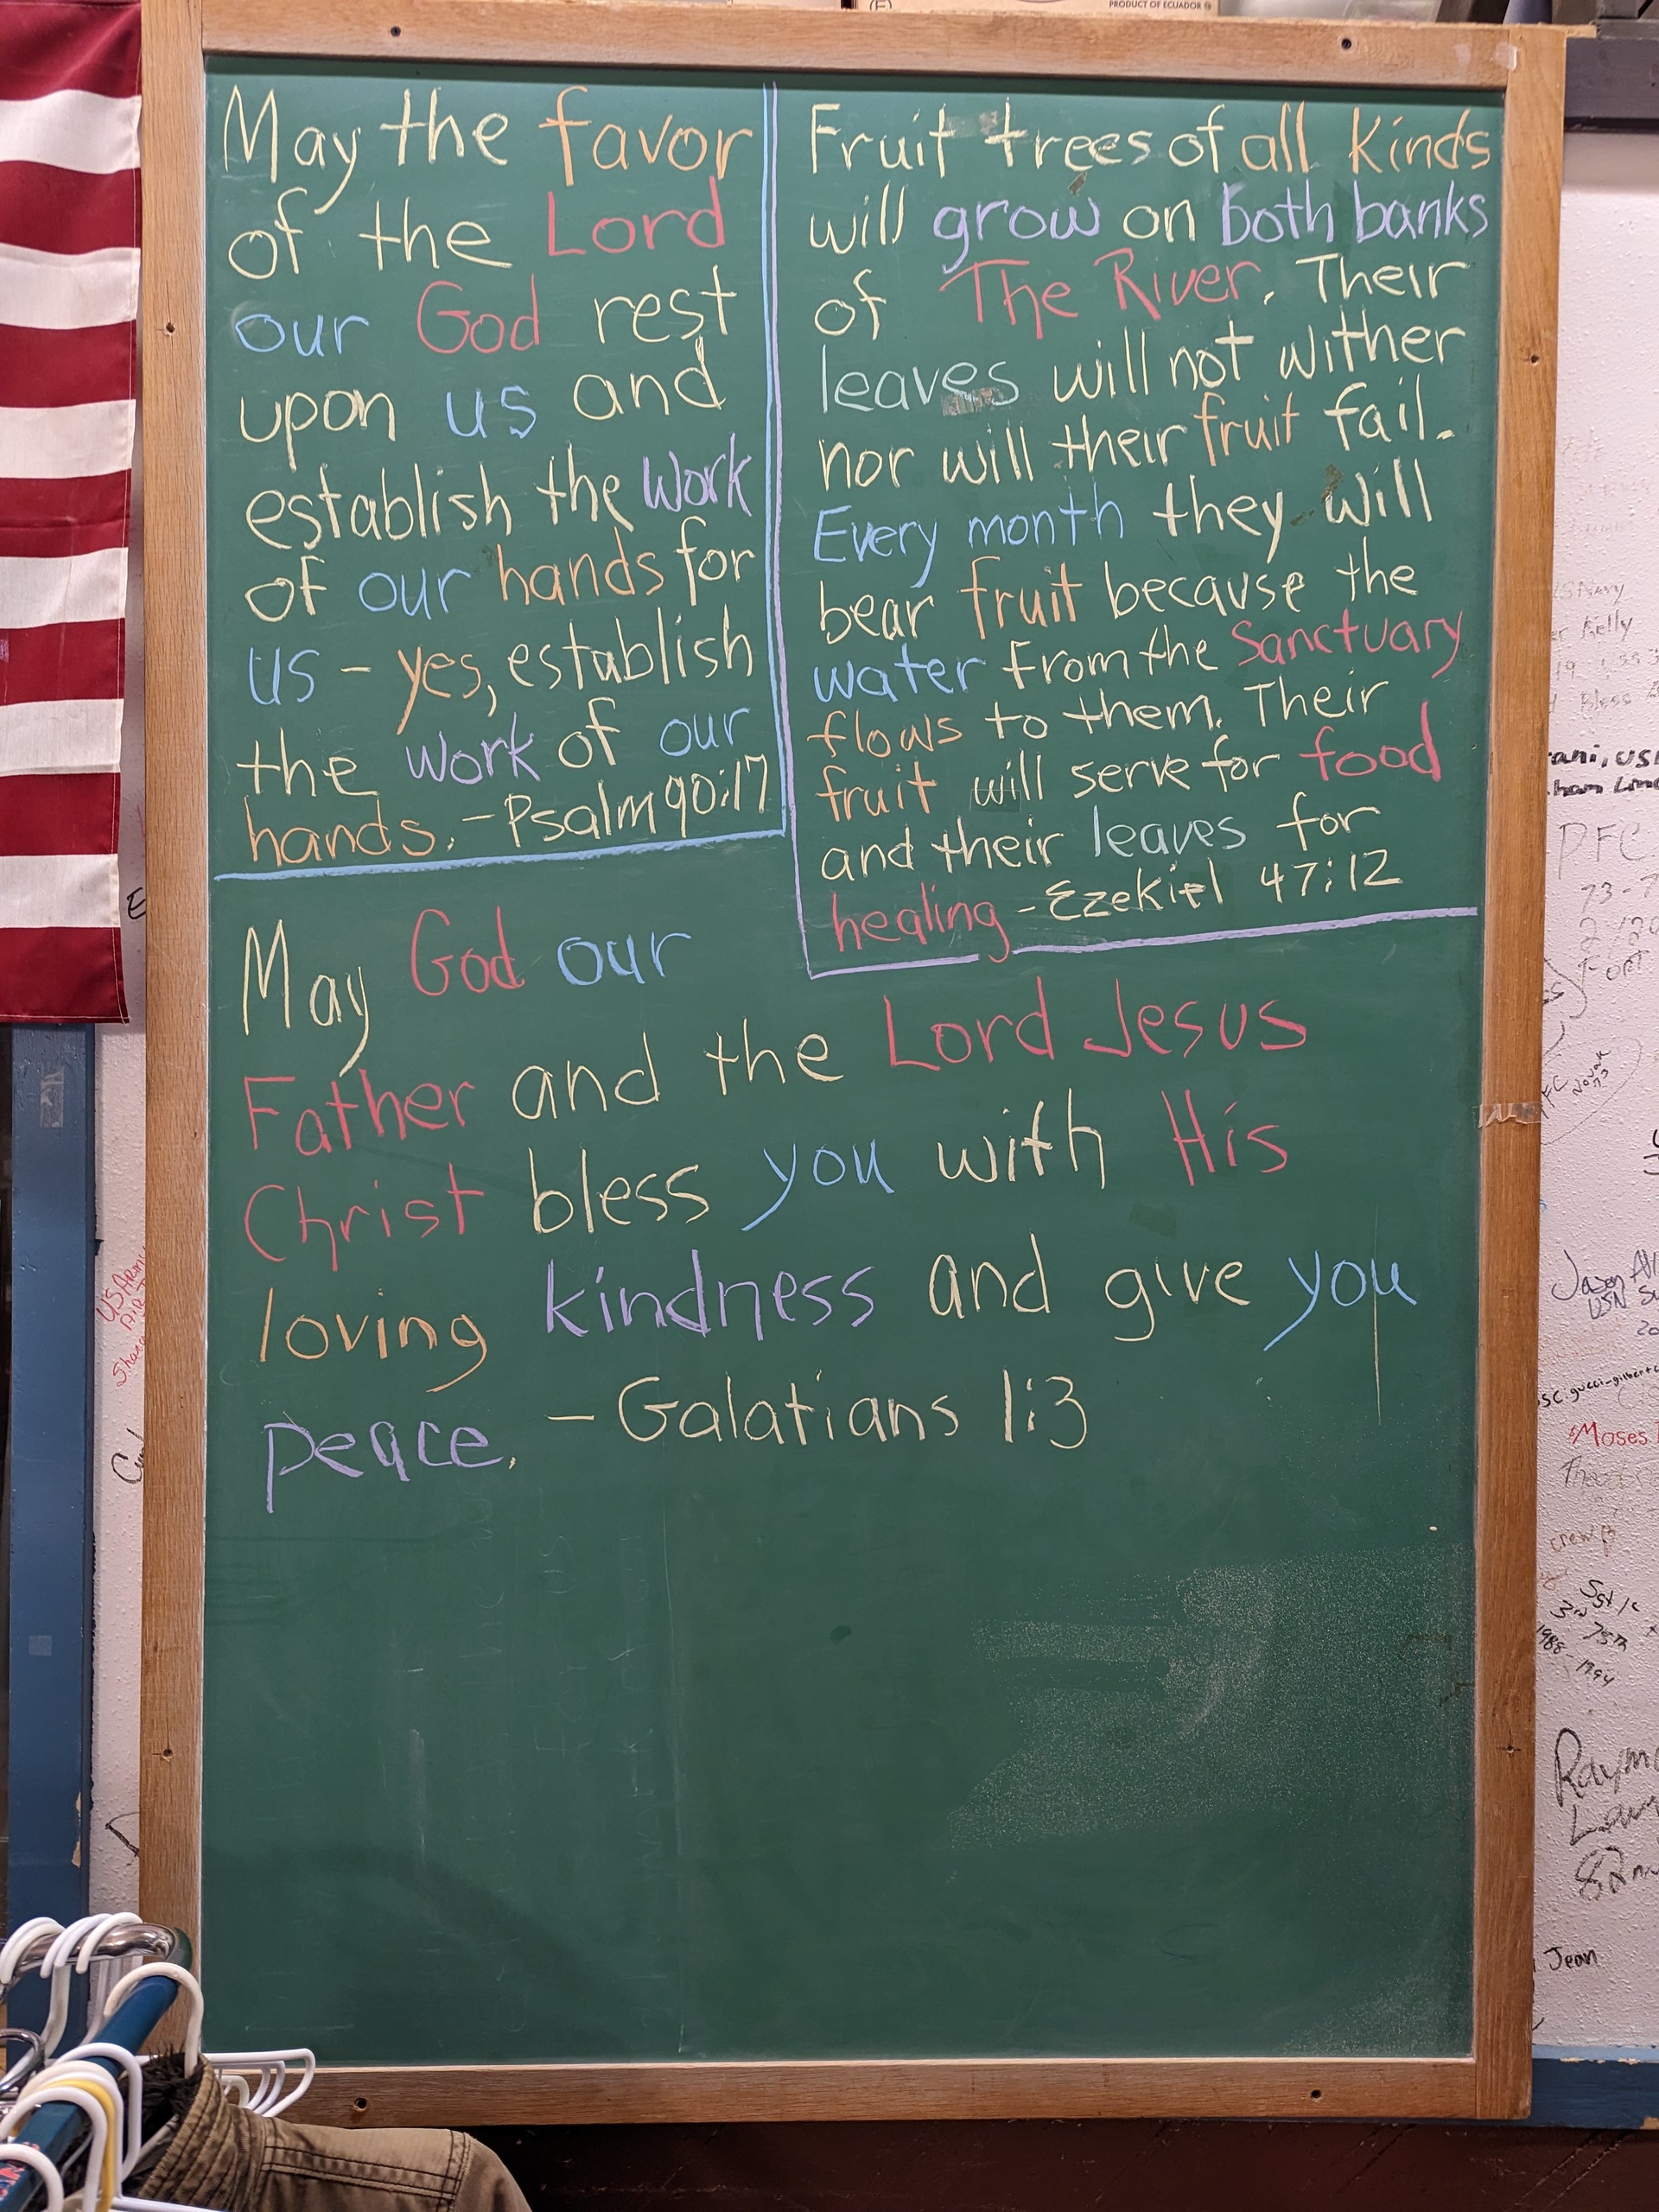 PRODUCT OF ECUADOR
May the favor
of the Lord
our God rest
upon us and
establish the work
of our hands for
us - yes, establish
the work of our
hands. - Psalm 90:17
Fruit trees of all Kinds
will grow on both banks
of The River. Their
leaves will not wither
nor will their fruit fail.
Every month they will
bear fruit because the
water from the Sanctuary
flows to them. Their
fruit will serve for food
and their leaves for
healing - Ezekiel 47:12
May God our
Father and the Lord Jesus
Christ bless you with His
loving kindness and give you
peace. - Galatians 1:3
Kelly
Bless
PFC
Jason
USN
Moses
1988-1994
Jean